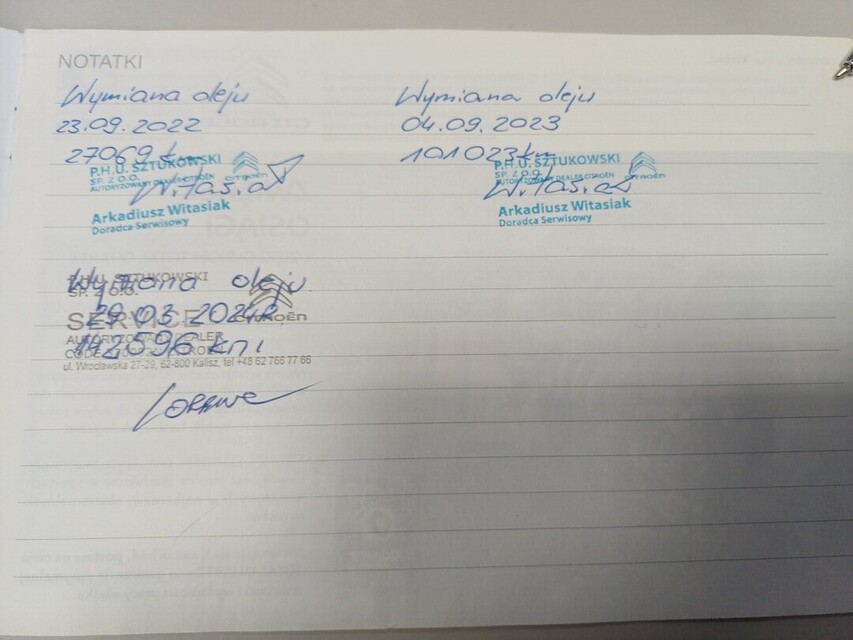 NOTATKI
Wymiana oleju
23.09.2022
27069 km
P.H.U. SZTUKOWSKI
SP. Z O.O.
AUTORYZOWANY DEALER CITROËN
CITROËN
Witasiak
Arkadiusz Witasiak
Doradca Serwisowy
Wymiana oleju
04.09.2023
101023 km
P.H.U. SZTUKOWSKI
SP. Z O.O.
AUTORYZOWANY DEALER CITROËN
CITROËN
Witasiak
Arkadiusz Witasiak
Doradca Serwisowy
Wymiana oleju
P.H.U. SZTUKOWSKI
SP. Z O.O.
29.03.2024
SERVICE CITROËN
AUTORYZOWANY DEALER
142596 km
ul. Wrocławska 27-29, 62-800 Kalisz, tel +48 62 766 77 66